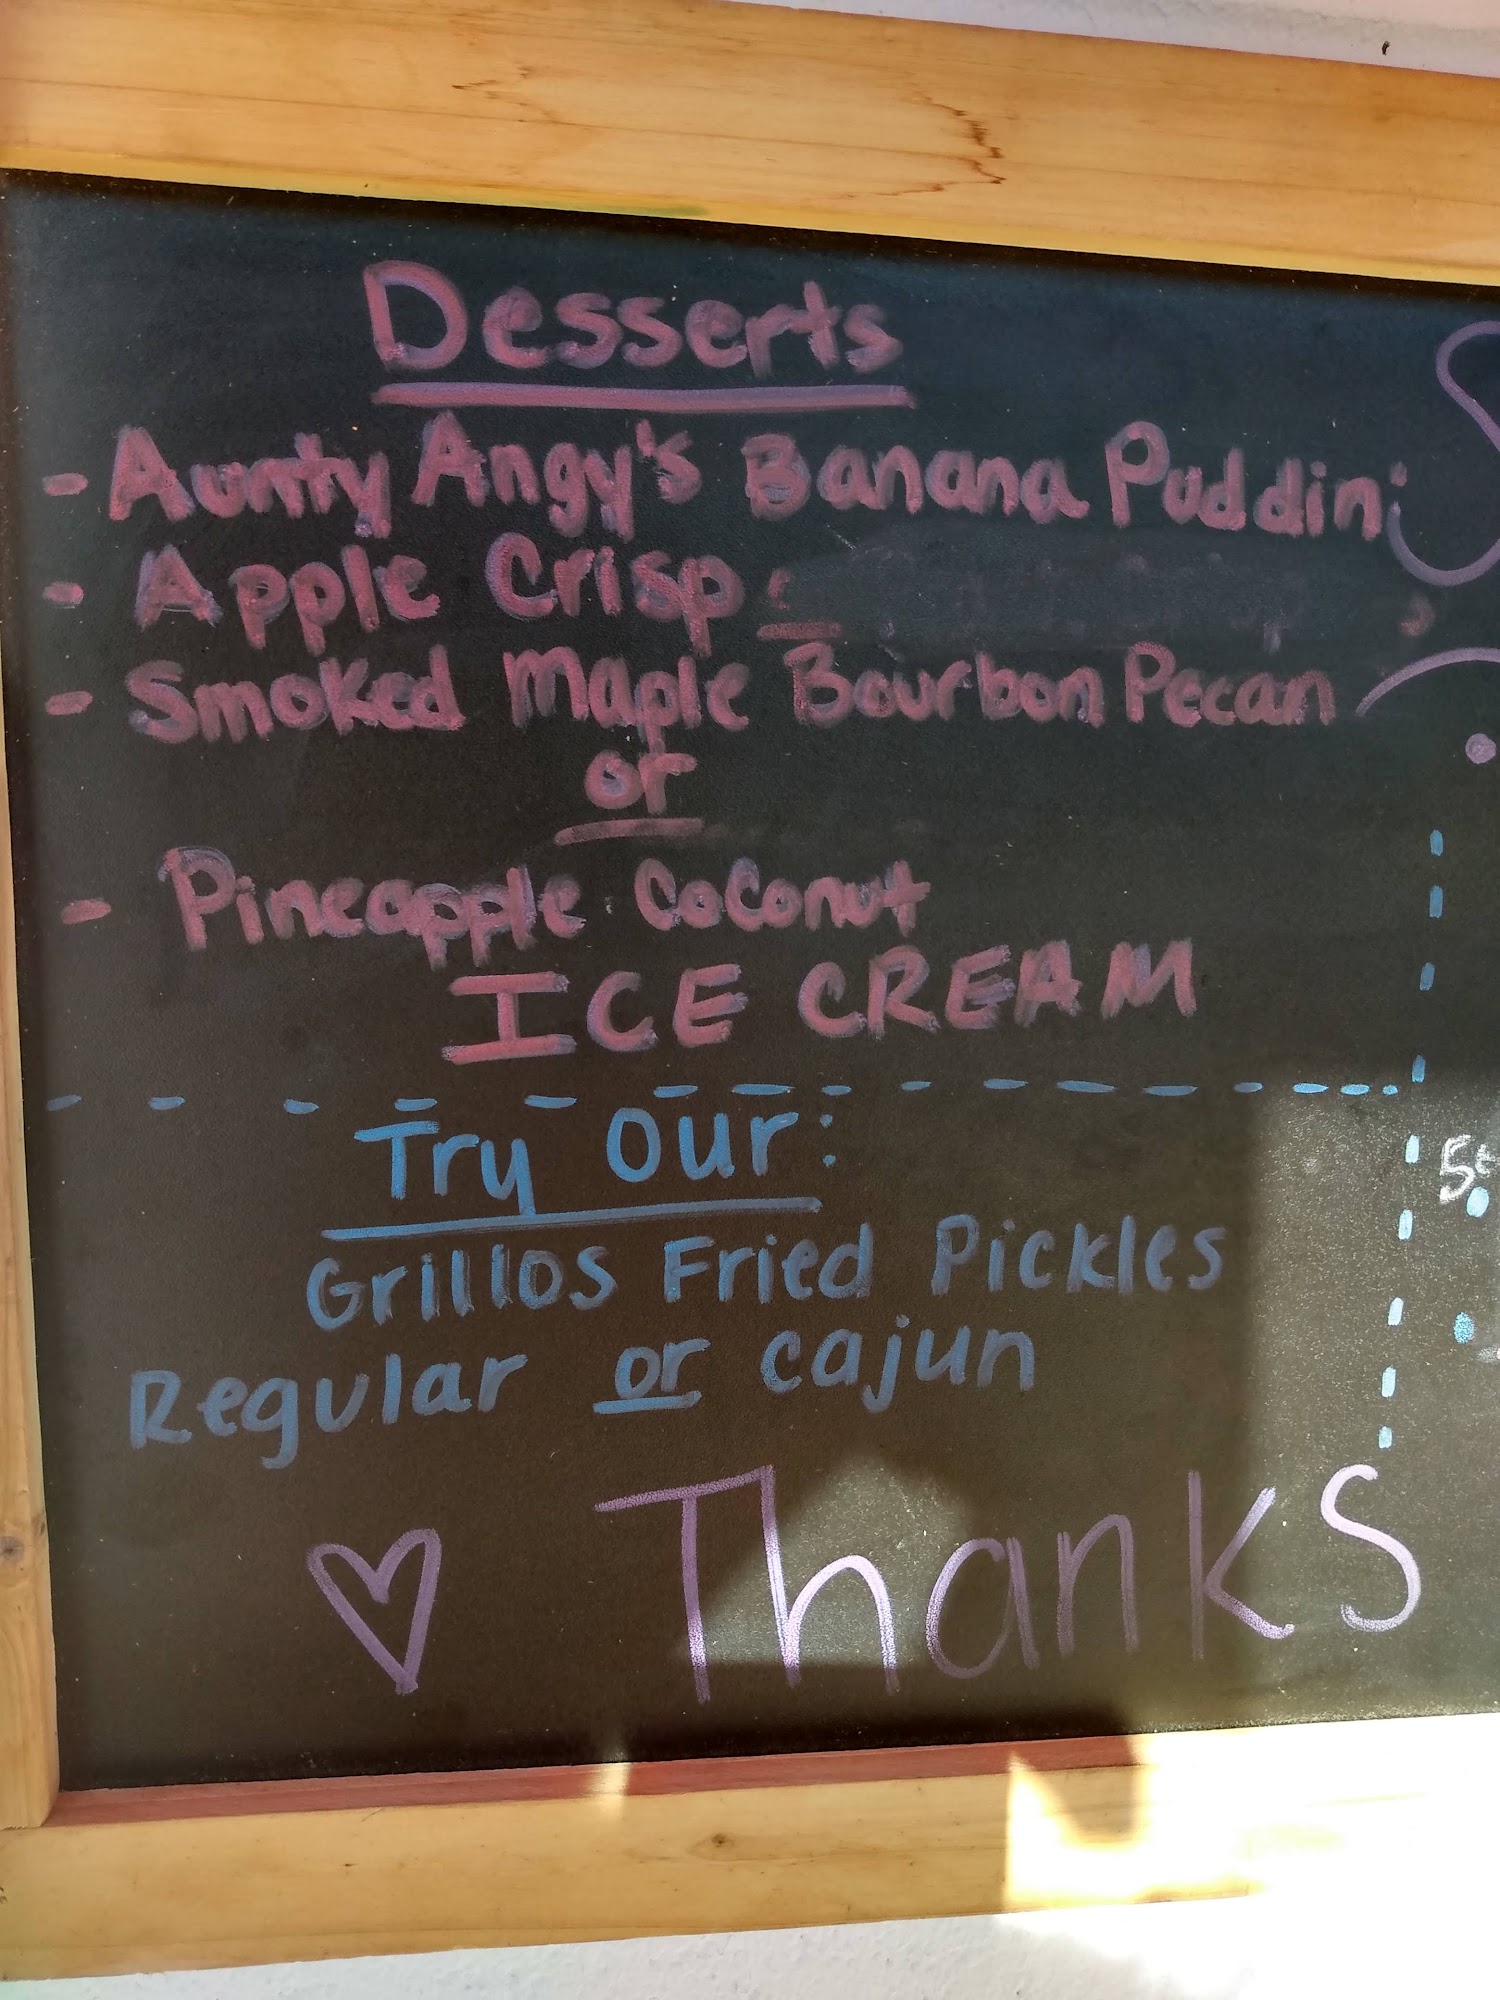 Desserts
- Aunty Angy's Banana Puddin'
- Apple Crisp
- Smoked Maple Bourbon Pecan
or
- Pineapple Coconut
ICE CREAM
Try Our:
Grillos Fried Pickles
Regular or Cajun
Thanks